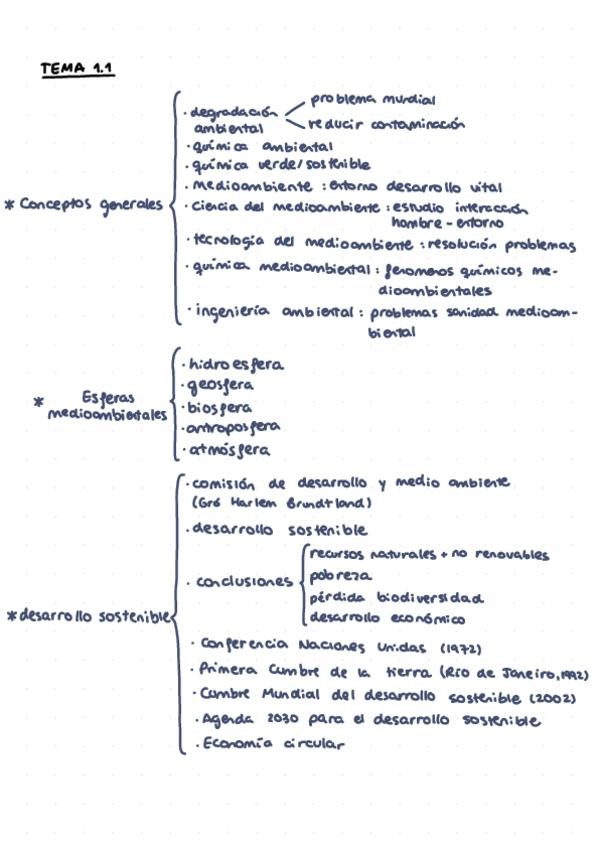 TEMA 1.1
* Conceptos generales
· degradación ambiental
problema mundial
reducir contaminación
· química ambiental
· química verde/sostenible
· medioambiente : entorno desarrollo vital
· ciencia del medioambiente : estudio interacción
hombre - entorno
· tecnología del medioambiente : resolución problemas
· química medioambiental : fenómenos químicos me-
dioambientales
· ingeniería ambiental : problemas sanidad medioam-
biental
* Esferas
medioambientales
· hidroesfera
· geosfera
· biosfera
· antroposfera
· atmósfera
* desarrollo sostenible
· comisión de desarrollo y medio ambiente
(Gró Harlem Brundtland)
· desarrollo sostenible
· conclusiones
recursos naturales + no renovables
pobreza
pérdida biodiversidad
desarrollo económico
· Conferencia Naciones Unidas (1972)
· Primera Cumbre de la tierra (Río de Janeiro, 1992)
· Cumbre Mundial del desarrollo sostenible (2002)
· Agenda 2030 para el desarrollo sostenible
· Economía circular